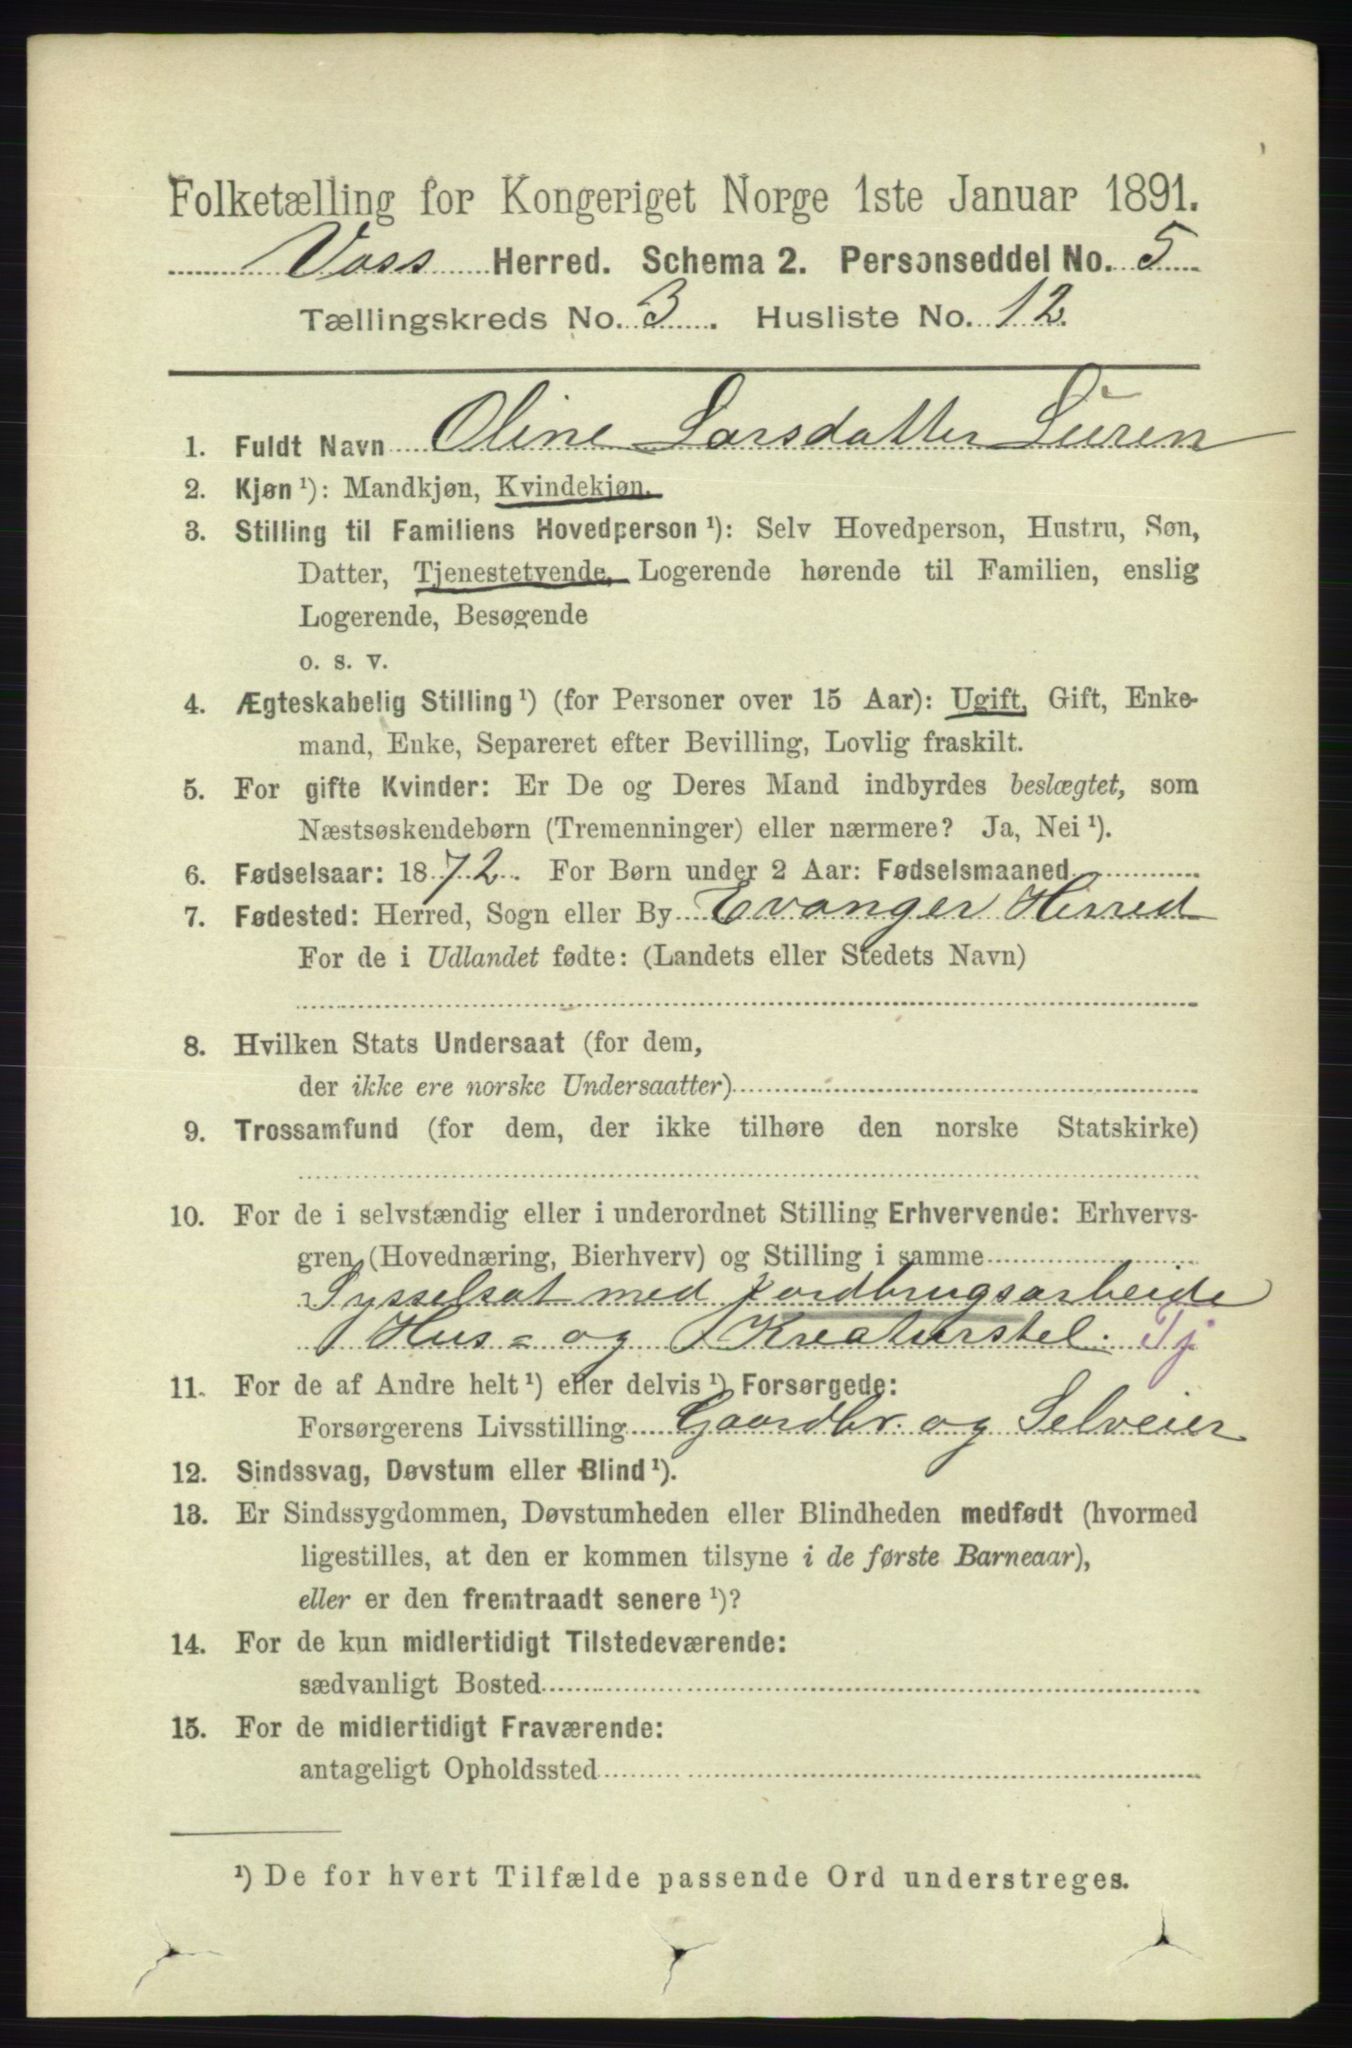 Folketælling for Kongeriget Norge 1ste Januar 1891.
Voss Herred. Schema 2. Personseddel No. 5
Tællingskreds No. 3. Husliste No. 12.
1. Fuldt Navn Oline Larsdatter Lūren
2. Kjøn ¹): Mandkjøn, Kvindekjøn.
3. Stilling til Familiens Hovedperson ¹): Selv Hovedperson, Hustru, Søn,
Datter, Tjenestetyende, Logerende hørende til Familien, enslig
Logerende, Besøgende
o. s. v.
4. Ægteskabelig Stilling ¹) (for Personer over 15 Aar): Ugift, Gift, Enke-
mand, Enke, Separeret efter Bevilling, Lovlig fraskilt.
5. For gifte Kvinder: Er De og Deres Mand indbyrdes beslægtet, som
Næstsøskendebørn (Tremenninger) eller nærmere? Ja, Nei ¹).
6. Fødselsaar: 1872. For Børn under 2 Aar: Fødselsmaaned
7. Fødested: Herred, Sogn eller By Evanger Herred
For de i Udlandet fødte: (Landets eller Stedets Navn)
8. Hvilken Stats Undersaat (for dem,
der ikke ere norske Undersaatter)
9. Trossamfund (for dem, der ikke tilhøre den norske Statskirke)
10. For de i selvstændig eller i underordnet Stilling Erhvervende: Erhvervs-
gren (Hovednæring, Bierhverv) og Stilling i samme
Sysselsat med Jordbrugsarbeide
Hus- og Kreaturstel. Tj
11. For de af Andre helt ¹) eller delvis ¹) Forsørgede:
Forsørgerens Livsstilling Gaardbr. og Selveier
12. Sindssvag, Døvstum eller Blind ¹).
13. Er Sindssygdommen, Døvstumheden eller Blindheden medfødt (hvormed
ligestilles, at den er kommen tilsyne i de første Barneaar),
eller er den fremtraadt senere ¹)?
14. For de kun midlertidigt Tilstedeværende:
sædvanligt Bosted
15. For de midlertidigt Fraværende:
antageligt Opholdssted
¹) De for hvert Tilfælde passende Ord understreges.